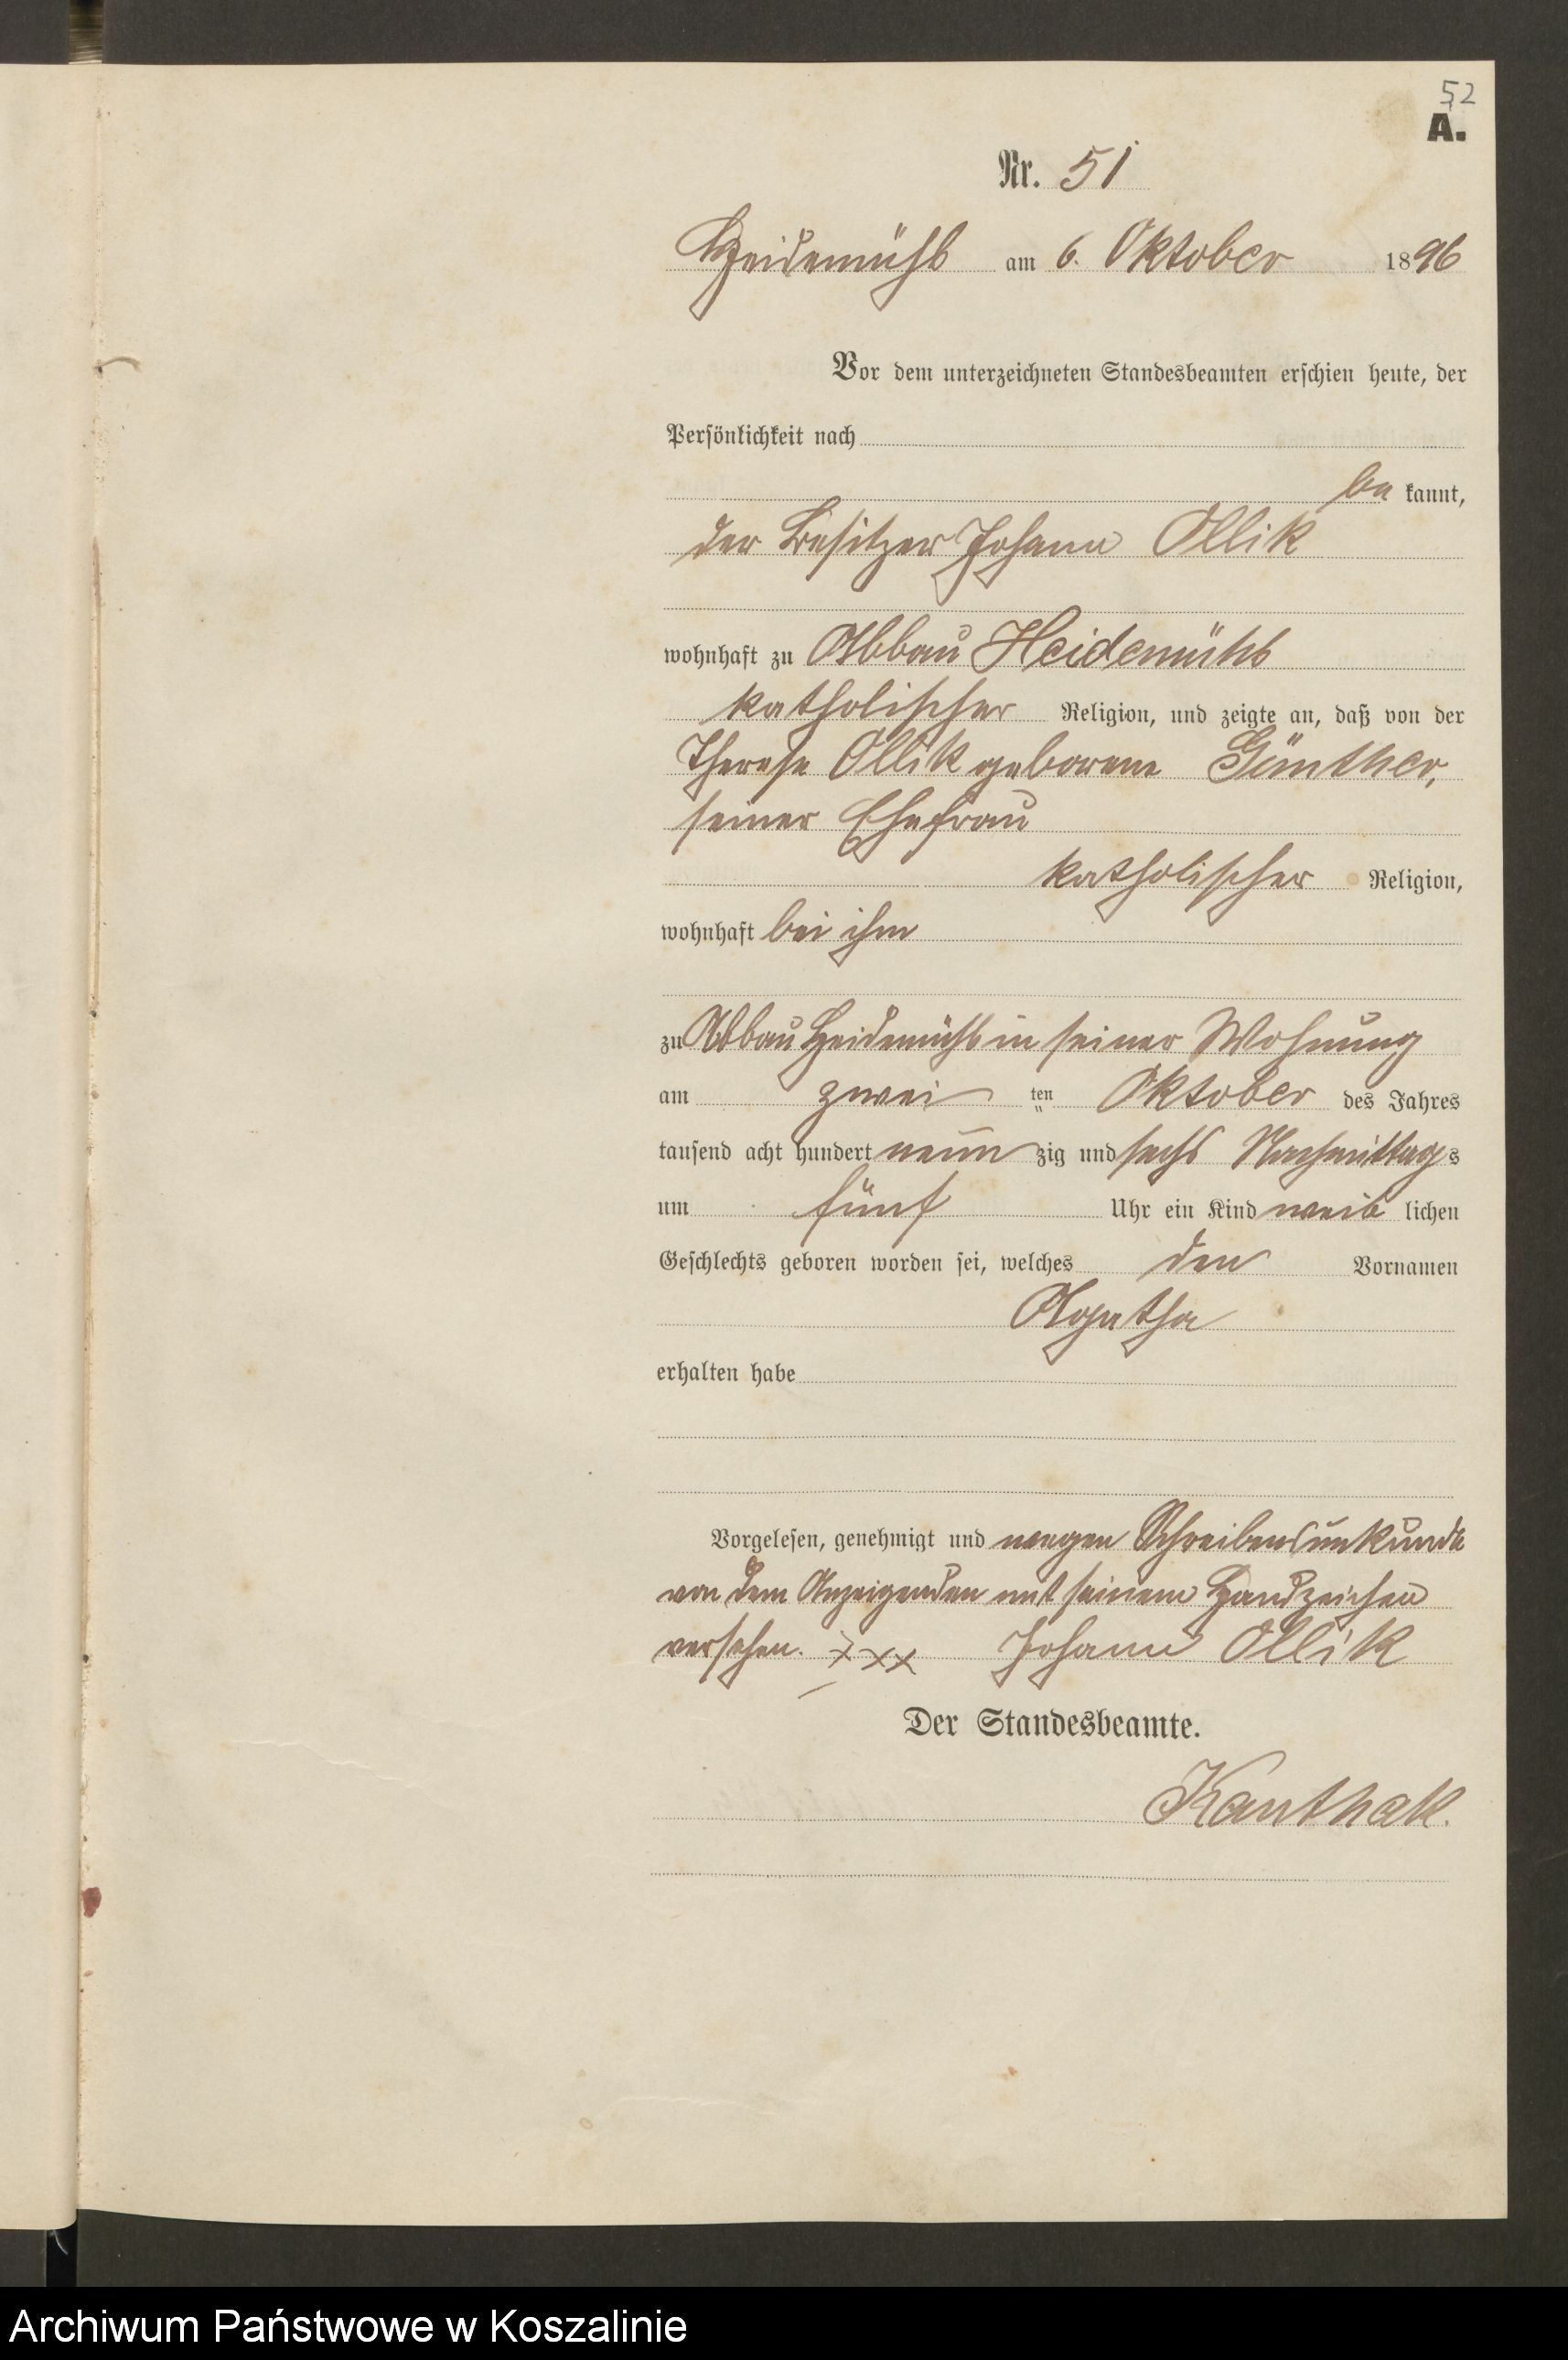 52
A.
Nr. 51
Heidemühl am 6. Oktober 1896
Vor dem unterzeichneten Standesbeamten erschien heute, der
Persönlichkeit nach
be kannt,
der Besitzer Johann Ollik
wohnhaft zu Abbau Heidemühl
katholischer Religion, und zeigte an, daß von der
Therese Ollik geborene Günther,
seiner Ehefrau
katholischer Religion,
wohnhaft bei ihm
zu Abbau Heidemühl in seiner Wohnung
am zwei ten Oktober des Jahres
tausend acht hundert neun zig und sechs Nachmittag s
um fünf Uhr ein Kind weib lichen
Geschlechts geboren worden sei, welches den Vornamen
Agatha
erhalten habe
Vorgelesen, genehmigt und wegen Schreibensunkunde
von dem Anzeigenden mit seinem Handzeichen
versehen. xxx Johann Ollik
Der Standesbeamte.
Kanthak.
Archiwum Państwowe w Koszalinie